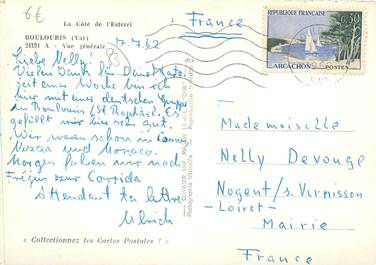 6€
La Côte de l'Esterel
France
BOULOURIS (Var)
21121 A - Vue générale
7.7.62
REPUBLIQUE FRANÇAISE
0,30
ARCACHON
POSTES
Liebe Nelly!
Vielen Dank für Deine Karte.
seit einer Woche bin ich
hier mit einer deutschen Gruppe
in Boulouris (St. Raphaël). Es
gefällt mir hier sehr gut.
Wir waren schon in Cannes,
Nizza und Monaco.
Morgen fahren wir nach
Fréjus zur Corrida
Attendant ta lettre
Ulrich
Mademoiselle
Nelly Devouge
Nogent/s. Vernisson
- Loiret -
Mairie
France
« Collectionnez les Cartes Postales ! »